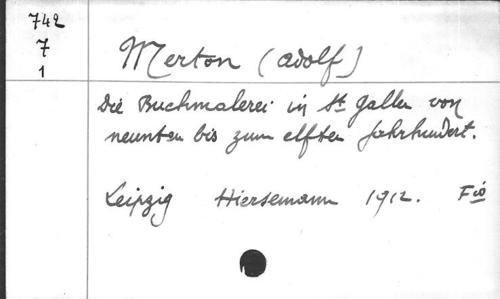 742
7
1
Merton (Adolf)
Die Buchmalerei in St Gallen von
neunten bis zum elften Jahrhundert.
Leipzig Hiersemann 1912. Fio